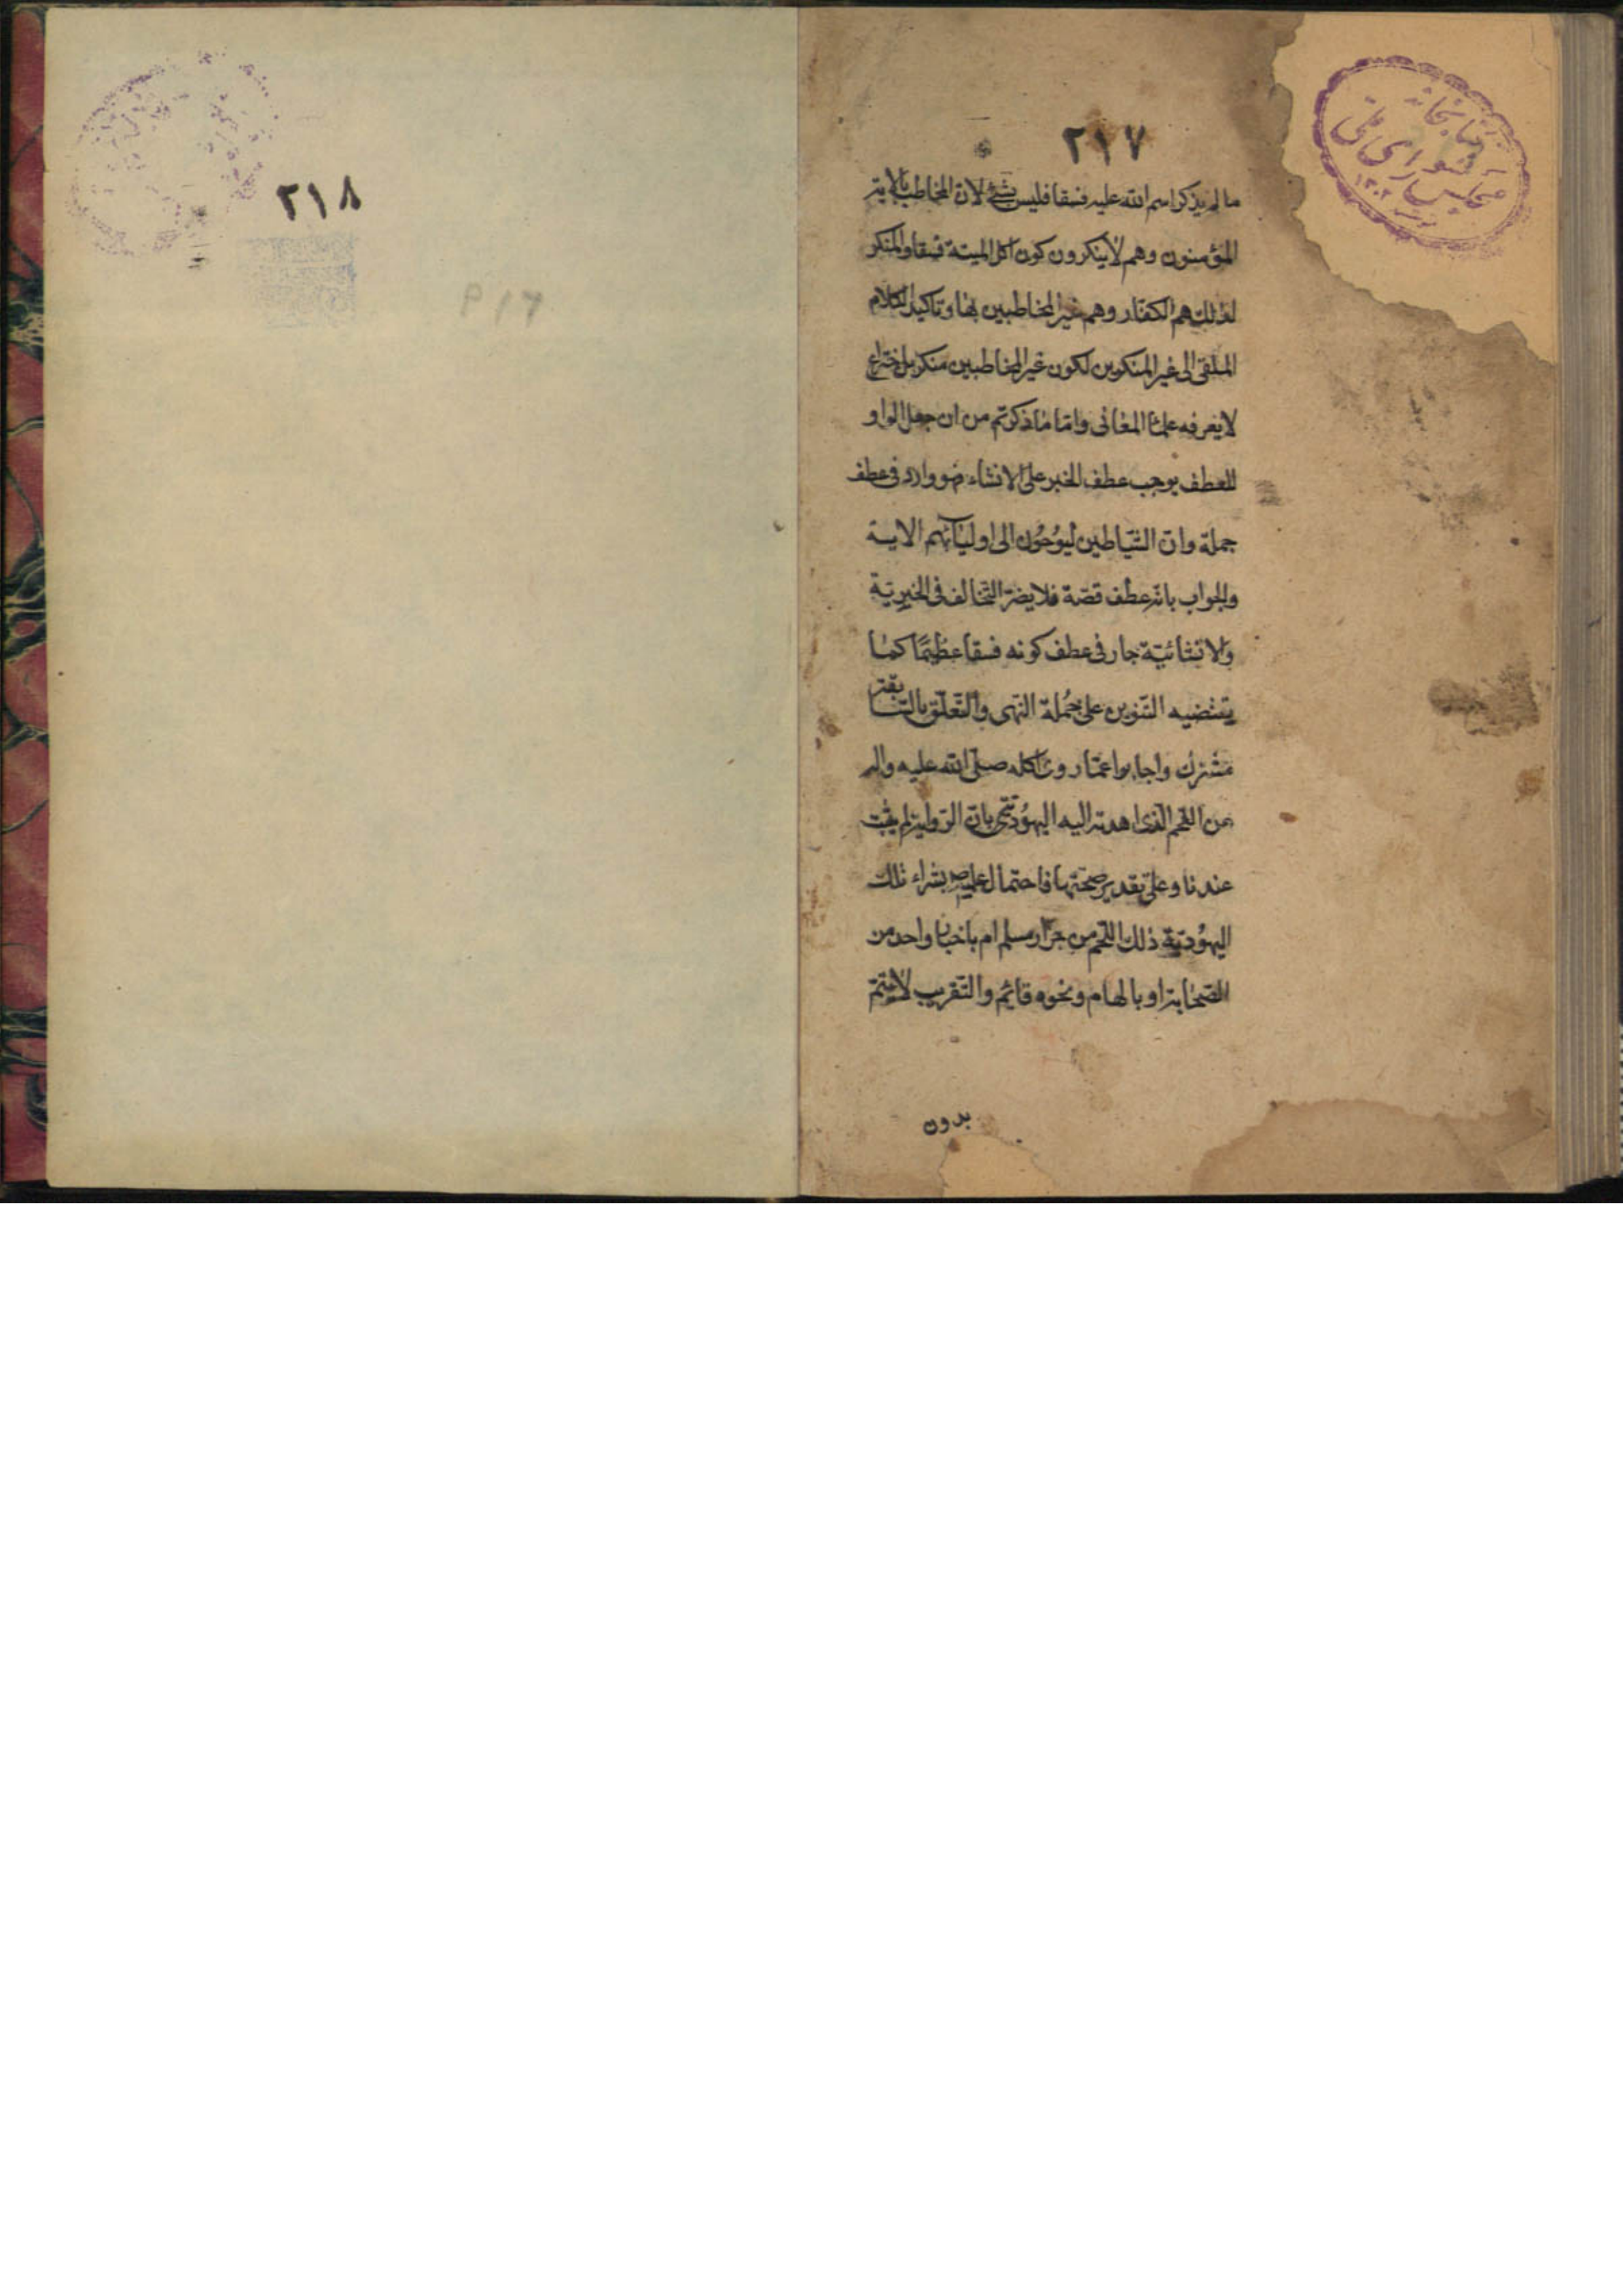 ٢١٧
مالم يذكر اسم الله عليه فسقا فليس بشئ لان المخاطب بالاية
المؤمنون وهم لاينكرون كون اكل الميتة فسقا والمنكر
لذلك هم الكفار وهم غير المخاطبين بها وتاكيد الكلام
الملقى الى غير المنكرين لكون غير المخاطبين منكرين اختراع
لايعرفه علماء المعانى واما ماذكرتم من ان جعل الواو
للعطف يوجب عطف الخبر على الانشاء فهو وارد فى عطف
جملة وان الشياطين ليوحُون الى اوليآئهم الاية
والجواب بانه عطف قصة فلايضر التخالف فى الخبرية
والانشائية جار فى عطف كونه فسقا عظيمًا كما
يقتضيه التنوين على جُملة النهى والتعلق بالسابقة
مشترك واجابوا عما روى اكله صلى الله عليه واله
من اللحم الذى اهدته اليه اليهُودية بان الرواية لم يثبت
عندنا وعلى تقدير صحتها فاحتمال علمه ص بشراء تلك
اليهُودية ذلك اللحم من جزار مسلم ام باخبار واحد من
الصحابة او بالهام ونحوه قائم والتقريب لايتم
بدون
كتابخانه
مجلس شوراى ملى
٢١٨
P ١٧